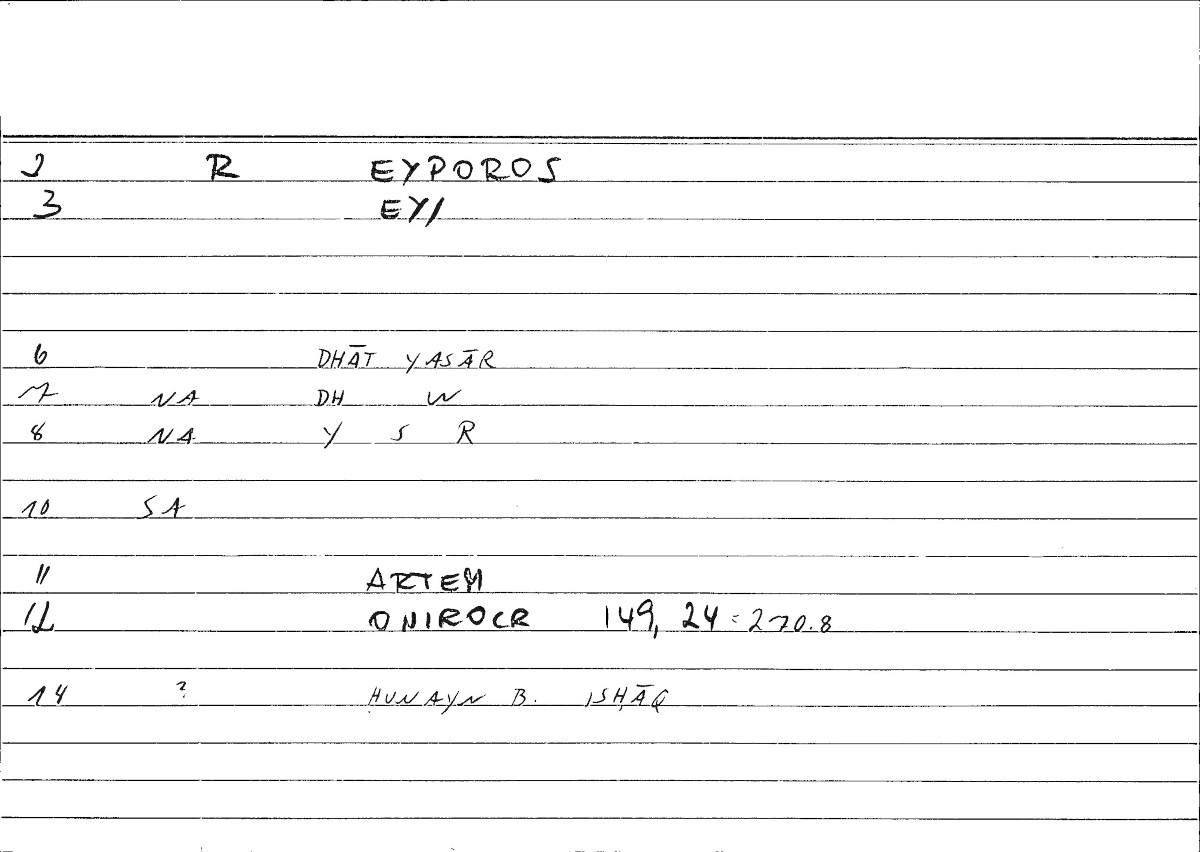 2 R EYPOROS
3 EY/
6 DHĀT YASĀR
7 NA DH W
8 NA Y S R
10 SA
11 ARTEM
12 ONIROCR 149, 24 = 270.8
14 ? ḤUNAYN B. ISḤĀQ